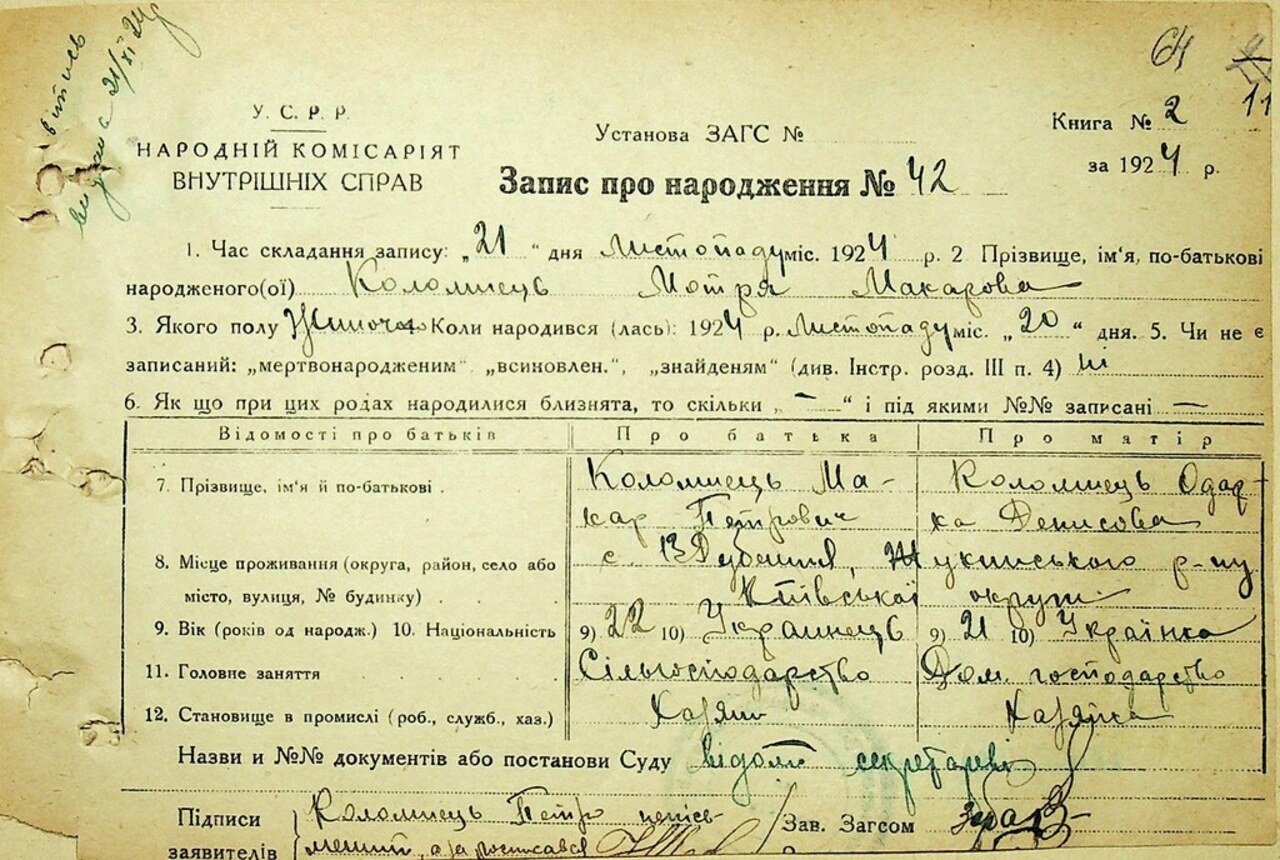 витись
видана 21/XI 24
64
11
У. С. Р. Р.
НАРОДНІЙ КОМІСАРІЯТ
ВНУТРІШНІХ СПРАВ
Установа ЗАГС №
Книга № 2
за 1924 р.
Запис про народження № 42
1. Час складання запису: „21“ дня Листопаду міс. 1924 р. 2 Прізвище, ім'я, по-батькові
народженого(ої) Коломиець Мотря Макарова
3. Якого полу Жиноча Коли народився (лась): 1924 р. Листопаду міс. „20“ дня. 5. Чи не є
записаний: „мертвонародженим“ „всиновлен.“, „знайденям“ (див. Інстр. розд. III п. 4) ні
6. Як що при цих родах народилися близнята, то скільки „—“ і під якими №№ записані —
Відомості про батьків Про батька Про матір
7. Прізвище, ім'я й по-батькові Коломиець Ма- Коломиець Одар-
кар Петрович ка Денисова
8. Місце проживання (округа, район, село або с. В Дубешня, Жукинського р-ну
місто, вулиця, № будинку) Київської округи
9. Вік (років од народж.) 10. Національність 9) 22 10) Украинець 9) 21 10) Українка
11. Головне заняття Сільгосподарство Дом. господарство
12. Становище в промислі (роб., служб., хаз.) Хазяин Хазяйка
Назви и №№ документів або постанови Суду відомі секретареві
Підписи Коломиець Петро неписьменний, Зав. Загсом
заявителів а за росписався